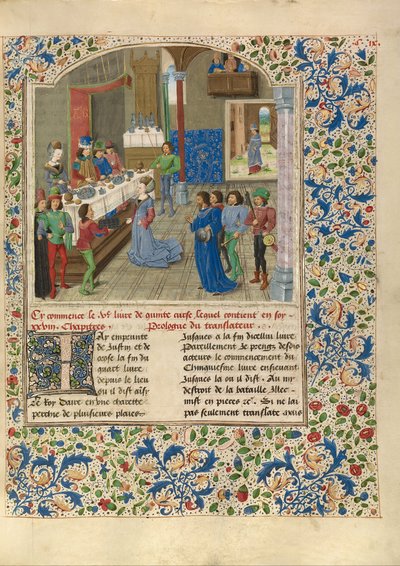 Cy commence le Vᵉ livre de quinte curse, lequel contient en soy
xxviii. Chapitres. Prologue du translateur
Hay emprunte
de Justin et de
orose la fin du
quart livre
depuis le lieu
ou il dist ains
Le Roy Daire en une charette
perchie de plusieurs places
Jusques a la fin dicellui livre
Pareillement Je prengz desdis
acteurs le commencement du
Chinquiesme livre ensievant
Jusques la ou il dist. Au
destroit de la bataille
mist en pieces &c. Si ne lai
pas seulement translate